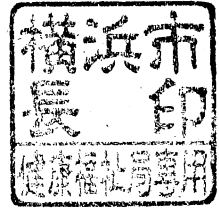 横浜市
長印
健康福祉局専用